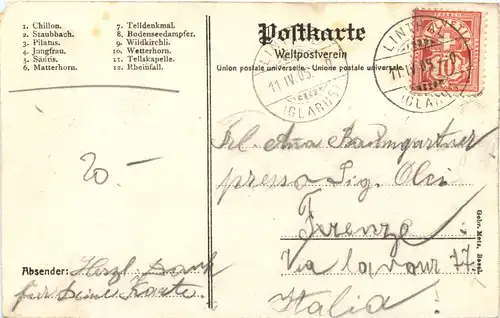 1. Chillon.
2. Staubbach.
3. Pilatus.
4. Jungfrau.
5. Säntis.
6. Matterhorn.
7. Telldenkmal.
8. Bodenseedampfer.
9. Wildkirchli.
10. Wetterhorn.
11. Tellskapelle.
12. Rheinfall.
Postkarte
Weltpostverein
Union postale universelle. - Unione postale universale.
11.IV.05.
(GLARUS)
LINTH
11.IV.05.
(GLARUS)
10
20.-
Frl. Anna Baumgartner
presso Sig. Olci
Firenze.
Via Cavour 77.
Italia!
Absender: Herzl. Dank
für Deine Karte.
Gebr. Metz, Basel.